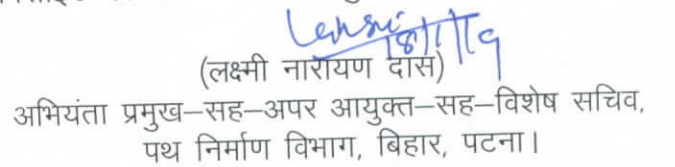 18/1/19
(लक्ष्मी नारायण दास)
अभियंता प्रमुख–सह–अपर आयुक्त–सह–विशेष सचिव,
पथ निर्माण विभाग, बिहार, पटना।